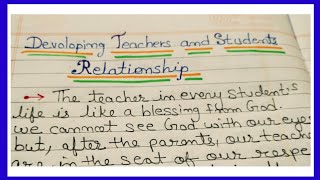 Devoloping Teachers and Students
Relationship
→ The teacher in every student's
life is like a blessing from God.
we cannot see God with our eye
but, after the parents, our teach
are in the seat of our respe